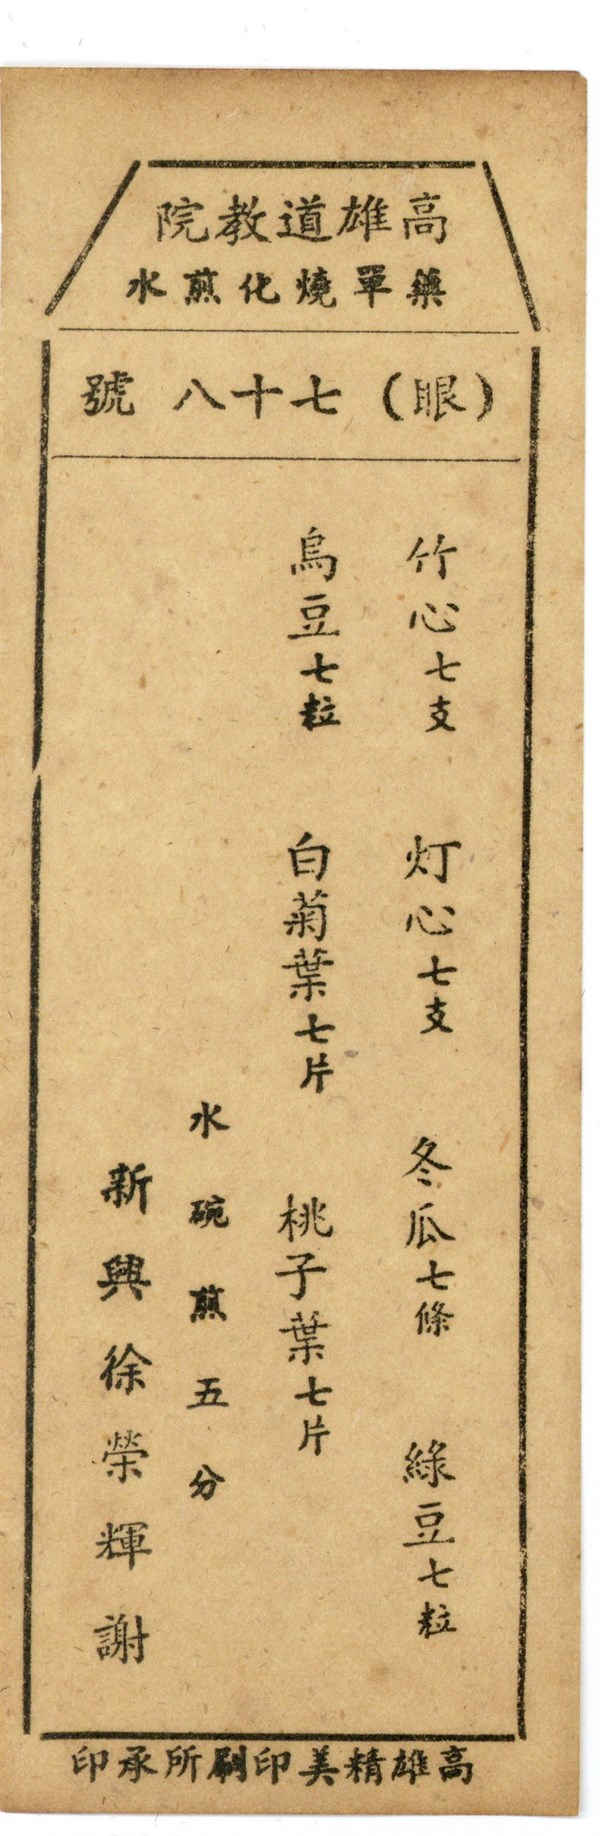 高雄道教院
藥單燒化煎水
(眼)七十八 號
竹心七支 灯心七支 冬瓜七條 綠豆七粒
烏豆七粒 白菊葉七片 桃子葉七片
水碗煎五分
新興徐榮輝謝
高雄精美印刷所承印